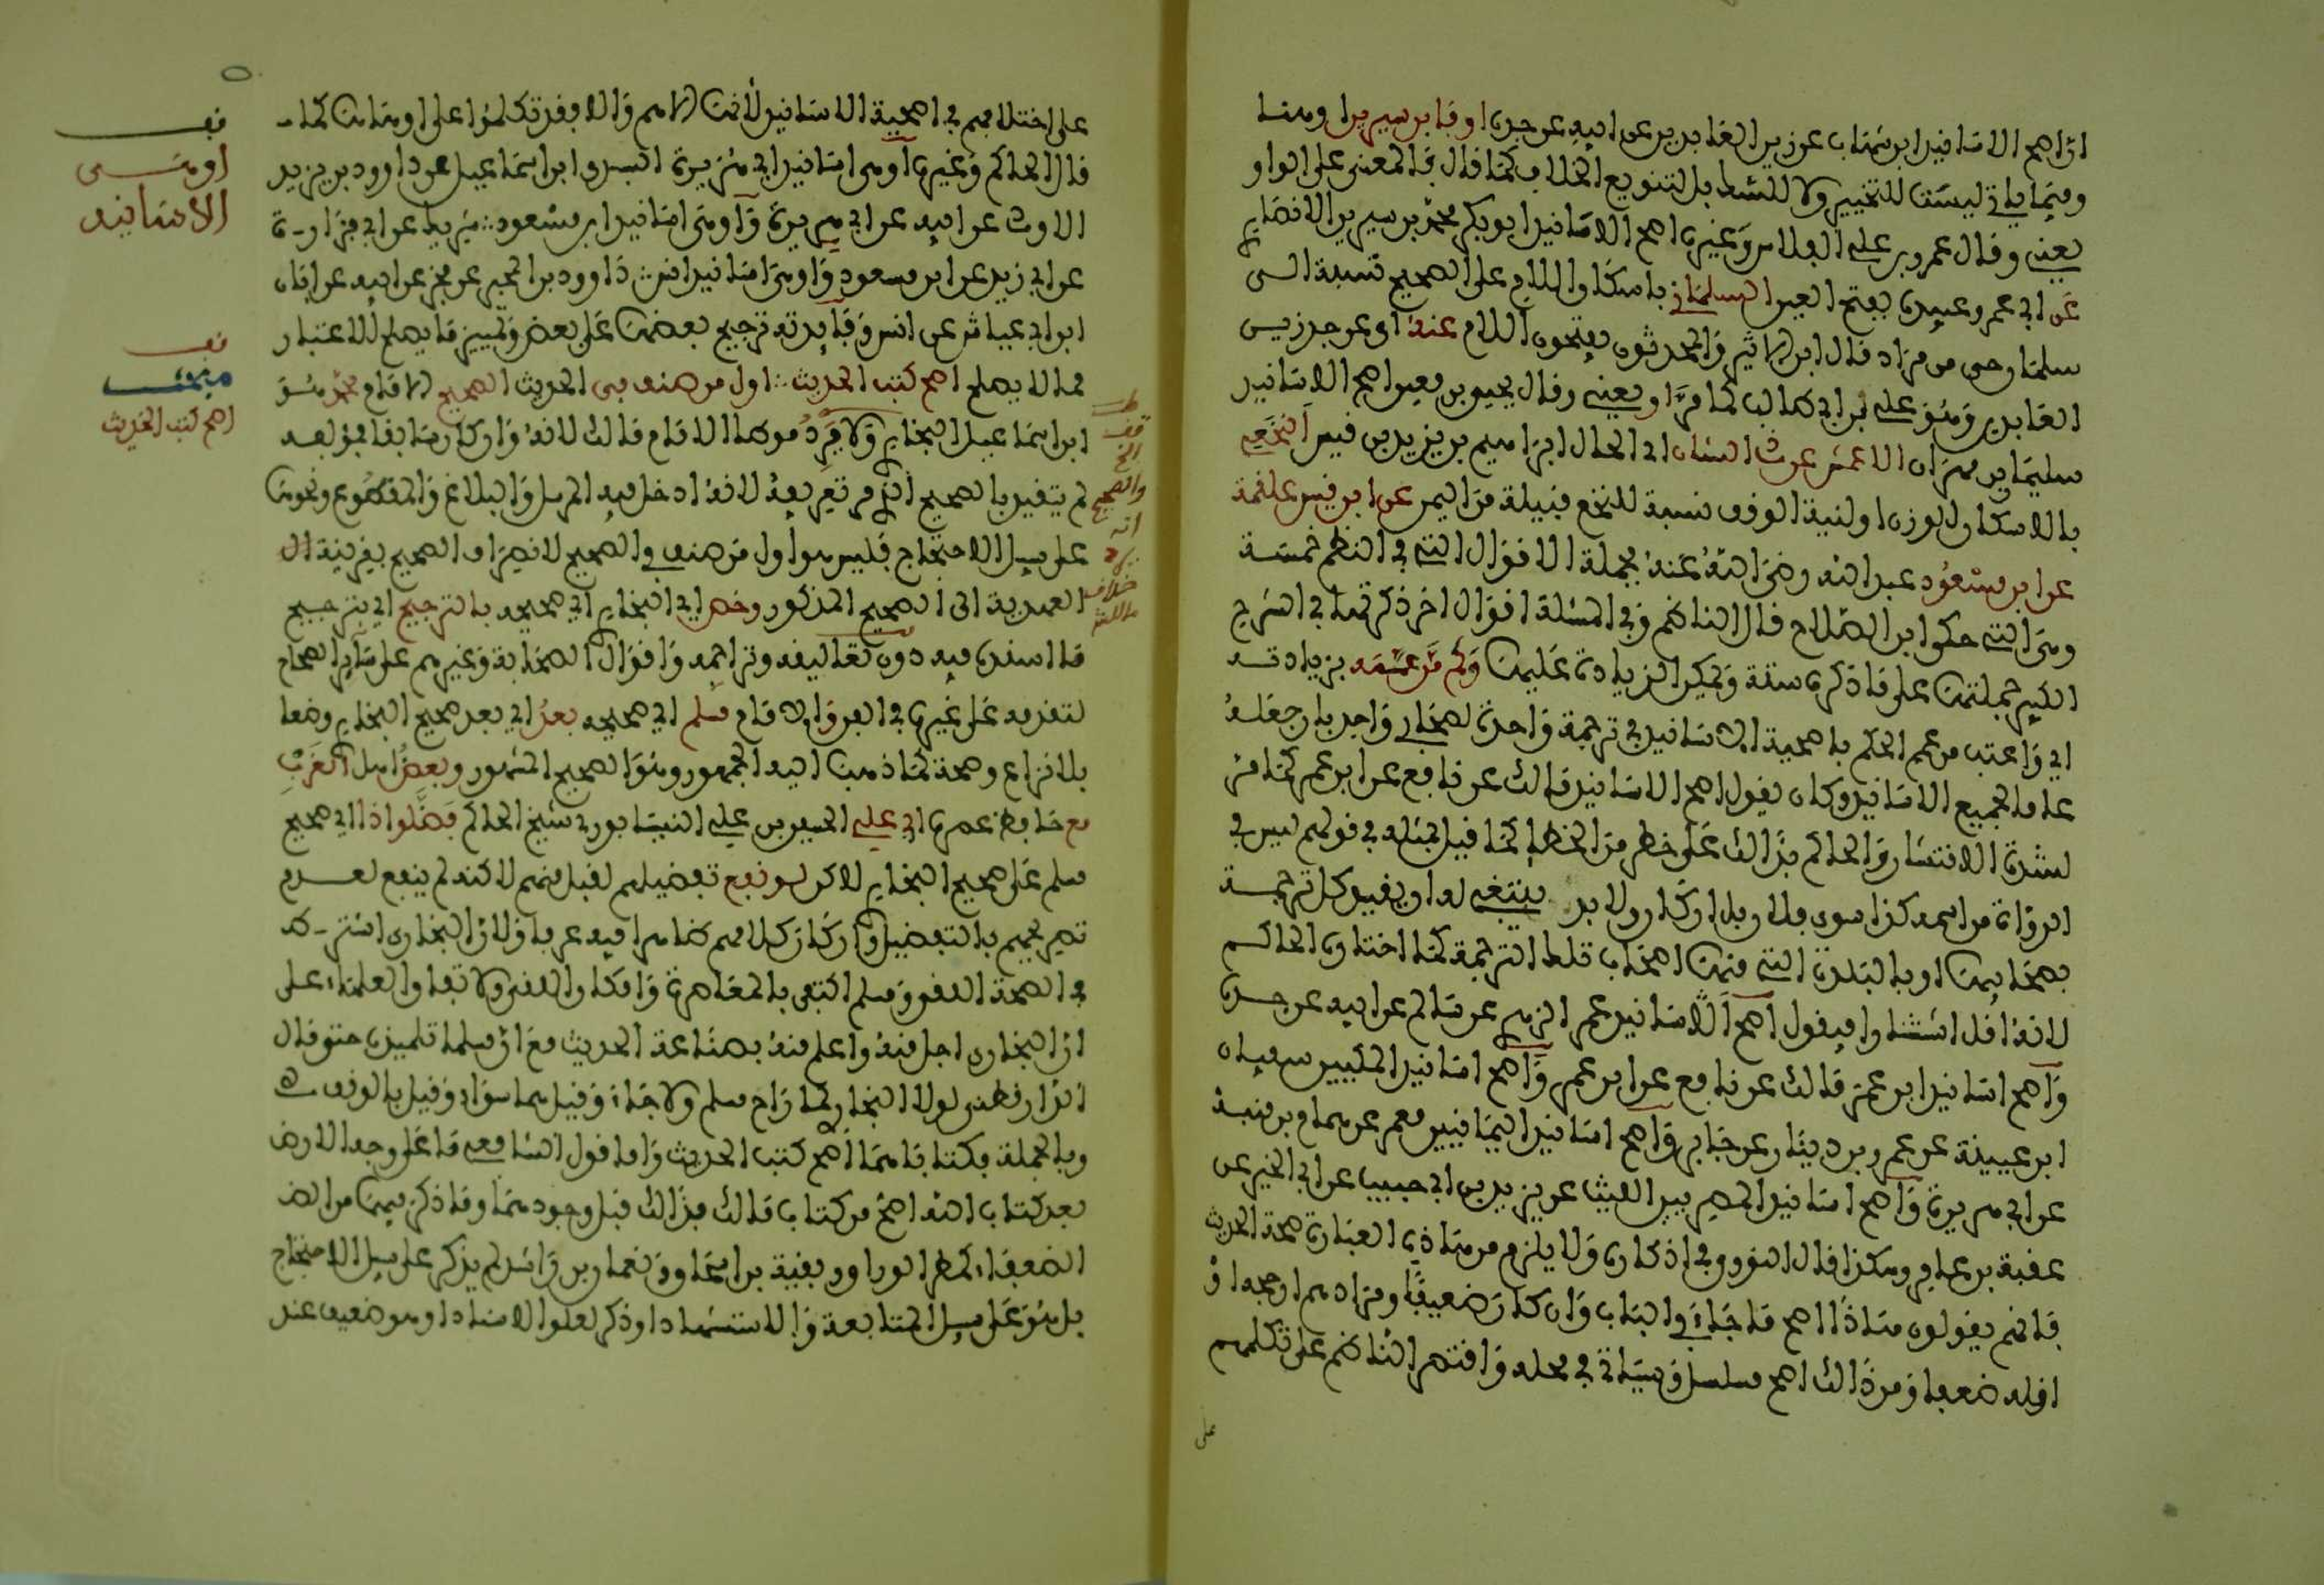 اراصح الاسانيد ابن شهاب عن زين العابدين عن ابيه عن جده او فابن سيرين او منا
وفيما ياتي ليست للتخيير ولا للشك بل لتنويع الخلاف كما قال في المعنى على الواو
يعني وقال عمرو بن علي الفلاس وغيره اصح الاسانيد ابو بكر محمد بن سيرين الانصاري
عن ابي عمرو عبيدة بفتح العين السلماني باسكان اللام على الصحيح نسبة الى
سلمان حي من مراد قال ابن الاثير والمحدثون يفتحون اللام عنه اي عن جد زين
العابدين وهو علي بن ابي طالب كما مر او يعني وقال يحيى بن معين اصح الاسانيد
سليمان بن مهران الاعمش عن ذي الشان ابي الحال ابراهيم بن يزيد بن قيس النخعي
بالاسكان للوزن او لنية الوقف نسبة للنخع قبيلة من اليمن عن ابن قيس علقمة
عن ابن مسعود عبد الله رضي الله عنه فجملة الاقوال التي في النظم خمسة
وهي التي حكى ابن الصلاح قال الناظم وفي المسئلة اقوال اخر ذكرتها في الشرح
الكبير جملتها على ما ذكره ستة ويمكن الزيادة عليها ولم من عممه بزيادته
اي واعتب من عمم الحكم باصحية الاسانيد في ترجمة واحدة لصحابي واحد بان جعله
عاما لجميع الاسانيد وكان يقول اصح الاسانيد مالك عن نافع عن ابن عمر كما مر
لشدة الانتشار والحاكم بذالك على خطر من الخطا كما قيل بمثله في قولهم ليس في
الرواة من اسمه كذا سوى فلان بل ان كان ولا بد ينبغي له ان يقيد كل ترجمة
بصحابيها او بالبلدة التي منها اصحاب تلك الترجمة كما اختاره الحاكم
لانه اقل انتشارا فيقول اصح الاسانيد عمر الزهري عن سالم عن ابيه عن جده
واصح اسانيد ابن عمر مالك عن نافع عن ابن عمر واصح اسانيد المكيين سفيان
ابن عيينة عن عمرو بن دينار عن جابر واصح اسانيد اليمانيين معمر عن همام بن منبه
عن ابي هريرة واصح اسانيد المصريين الليث عن يزيد بن ابي حبيب عن ابي الخير عن
عقبة بن عامر وهكذا قال النووي في اذكاره ولا يلزم من هاذه العبارة صحة الحديث
فانهم يقولون هاذا اصح ما جاء في الباب وان كان ضعيفا ومرادهم ارجحه او
اقله ضعفا ومن ذالك اصح مسلسل وسياتي في محله واقتصر الناظم على تكلمهم
على
على اختلافهم في اصحية الاسانيد لانها الاهم والا فقد تكلموا على اوهاها كما
قال الحاكم وغيره اوهى اسانيد ابي هريرة السري بن اسماعيل عن داوود بن يزيد
الاودي عن ابيه عن ابي هريرة واوهى اسانيد ابن مسعود شريك عن ابي فزارة
عن ابي زيد عن ابن مسعود واوهى اسانيد انس داوود بن المحبر عن محذم عن ابيه عن ابان
ابن ابي عياش عن انس وفايدته ترجيح بعضها على بعض وتمييز ما يصلح للاعتبار
مما لا يصلح اصح كتب الحديث اول من صنف في الحديث الصحيح الامام محمد هو
ابن اسماعيل البخاري ولا يرد موطا الامام مالك لانه وان كان سابقا مولفه
لم يتقيد بالصحيح الذي مر تعريفه لانه ادخل فيه المرسل والبلاغ والمقطوع ونحوها
على سبيل الاحتجاج فليس هو اول من صنف في الصحيح لانصراف الصحيح بقرينة ال
العهدية الى الصحيح المذكور وخص اي البخاري اي صحيحه بالترجيح اي بترجيح
ما اسنده فيه دون تعاليقه وتراجمه واقوال الصحابة وغيرهم على ساير الصحاح
لتقدمه على غيره في الفن والامام مسلم اي صحيحه بعد اي بعد صحيح البخاري وضعا
بلا نزاع وصحة كما ذهب اليه الجمهور وهو الصحيح المشهور وبعض اهل الغرب
مع حافظ عصره ابي علي الحسين بن علي النيسابوري شيخ الحاكم فضلوا ذا اي صحيح
مسلم على صحيح البخاري لاكن لو نفع تفضيلهم لقبل منهم لاكنه لم ينفع لعدم
تصريحهم بالتفضيل وان كان كلامهم ظاهرا فيه عرفا ولان البخاري اشترط
في الصحة اللقي ومسلم اكتفى بالمعاصرة وامكان اللقي ولاتفاق العلماء على
ان البخاري اجل منه واعلم منه بصناعة الحديث مع ان مسلما تلميذه حتى قال
الدارقطني لولا البخاري لما راح مسلم ولا جاء وقيل هما سواء وقيل بالوقف
وبالجملة فكتاباهما اصح كتب الحديث واما قول الشافعي ما على وجه الارض
بعد كتاب الله اصح من كتاب مالك فذالك قبل وجودهما وما ذكر فيهما من الض
الضعفاء كمطر الوراق وبقية بن اسحاق ونعمان بن راشد لم يذكر على سبيل الاحتجاج
بل هو على سبيل المتابعة والاستشهاد او ذكر لعلو الاسناد او هو ضعيف عند
قف
اوهى
الاسانيد
قف
مبحث
اصح كتب الحديث